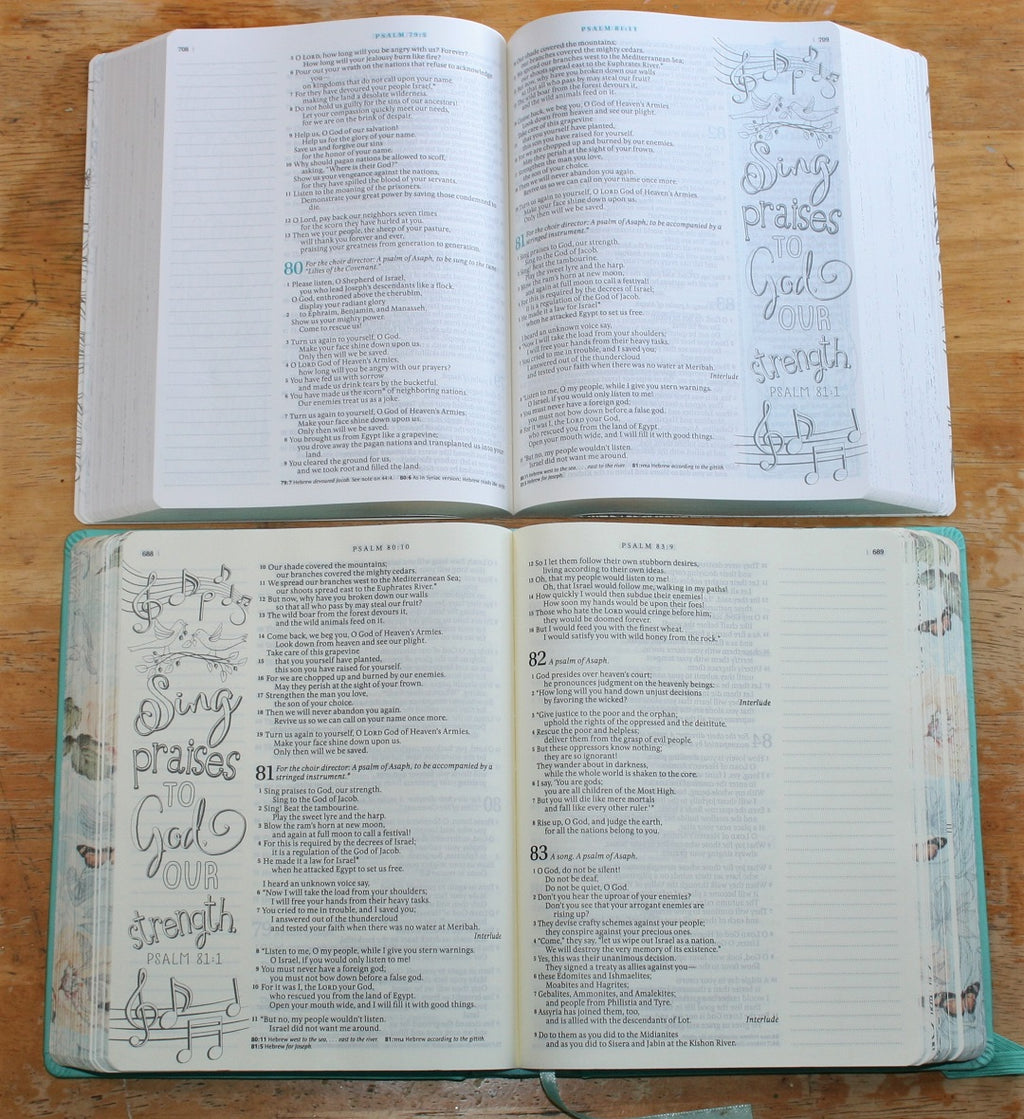 708
PSALM 79:5
5 O LORD, how long will you be angry with us? Forever?
How long will your jealousy burn like fire?
6 Pour out your wrath on the nations that refuse to acknowledge
you—
on kingdoms that do not call upon your name.
7 For they have devoured your people Israel,*
making the land a desolate wilderness.
8 Do not hold us guilty for the sins of our ancestors!
Let your compassion quickly meet our needs,
for we are on the brink of despair.
9 Help us, O God of our salvation!
Help us for the glory of your name.
Save us and forgive our sins
for the honor of your name.
10 Why should pagan nations be allowed to scoff,
asking, "Where is their God?"
Show us your vengeance against the nations,
for they have spilled the blood of your servants.
11 Listen to the moaning of the prisoners.
Demonstrate your great power by saving those condemned to
die.
12 O Lord, pay back our neighbors seven times
for the scorn they have hurled at you.
13 Then we your people, the sheep of your pasture,
will thank you forever and ever,
praising your greatness from generation to generation.
80 For the choir director: A psalm of Asaph, to be sung to the tune
"Lilies of the Covenant."
1 Please listen, O Shepherd of Israel,
you who lead Joseph's descendants like a flock.
O God, enthroned above the cherubim,
display your radiant glory
2 to Ephraim, Benjamin, and Manasseh.
Show us your mighty power.
Come to rescue us!
3 Turn us again to yourself, O God.
Make your face shine down upon us.
Only then will we be saved.
4 O LORD God of Heaven's Armies,
how long will you be angry with our prayers?
5 You have fed us with sorrow
and made us drink tears by the bucketful.
6 You have made us the scorn* of neighboring nations.
Our enemies treat us as a joke.
7 Turn us again to yourself, O God of Heaven's Armies.
Make your face shine down upon us.
Only then will we be saved.
8 You brought us from Egypt like a grapevine;
you drove away the pagan nations and transplanted us into your
land.
9 You cleared the ground for us,
and we took root and filled the land.
79:7 Hebrew devoured Jacob. See note on 44:4. 80:6 As in Syriac version; Hebrew reads
PSALM 81:11
709
Our shade covered the mountains;
our branches covered the mighty cedars.
spread our branches west to the Mediterranean Sea;
our shoots spread east to the Euphrates River.*
now, why have you broken down our walls
so that all who pass by may steal our fruit?
The wild boar from the forest devours it,
and the wild animals feed on it.
Come back, we beg you, O God of Heaven's Armies.
Look down from heaven and see our plight.
Take care of this grapevine
that you yourself have planted,
this son you have raised for yourself.
For we are chopped up and burned by our enemies.
May they perish at the sight of your frown.
Strengthen the man you love,
the son of your choice.
Then we will never abandon you again.
Revive us so we can call on your name once more.
Turn us again to yourself, O LORD God of Heaven's Armies.
Make your face shine down upon us.
Only then will we be saved.
81 For the choir director: A psalm of Asaph, to be accompanied by a
stringed instrument.*
Sing praises to God, our strength.
Sing to the God of Jacob.
Sing! Beat the tambourine.
Play the sweet lyre and the harp.
Blow the ram's horn at new moon,
and again at full moon to call a festival!
For this is required by the decrees of Israel;
it is a regulation of the God of Jacob.
He made it a law for Israel*
when he attacked Egypt to set us free.
I heard an unknown voice say,
"Now I will take the load from your shoulders;
I will free your hands from their heavy tasks.
You cried to me in trouble, and I saved you;
I answered out of the thundercloud
and tested your faith when there was no water at Meribah.
Interlude
"Listen to me, O my people, while I give you stern warnings.
O Israel, if you would only listen to me!
You must never have a foreign god;
you must not bow down before a false god.
For it was I, the LORD your God,
who rescued you from the land of Egypt.
Open your mouth wide, and I will fill it with good things.
"But no, my people wouldn't listen.
Israel did not want me around.
80:11 Hebrew west to the sea, . . . east to the river. 81:TITLE Hebrew according to the gittith.
81:5 Hebrew for Joseph.
Sing
praises
TO
God
OUR
strength
PSALM 81:1
688
PSALM 80:10
Sing
praises
TO
God
OUR
strength
PSALM 81:1
10 Our shade covered the mountains;
our branches covered the mighty cedars.
11 We spread our branches west to the Mediterranean Sea;
our shoots spread east to the Euphrates River.*
12 But now, why have you broken down our walls
so that all who pass by may steal our fruit?
13 The wild boar from the forest devours it,
and the wild animals feed on it.
14 Come back, we beg you, O God of Heaven's Armies.
Look down from heaven and see our plight.
Take care of this grapevine
15 that you yourself have planted,
this son you have raised for yourself.
16 For we are chopped up and burned by our enemies.
May they perish at the sight of your frown.
17 Strengthen the man you love,
the son of your choice.
18 Then we will never abandon you again.
Revive us so we can call on your name once more.
19 Turn us again to yourself, O LORD God of Heaven's Armies.
Make your face shine down upon us.
Only then will we be saved.
81 For the choir director: A psalm of Asaph, to be accompanied by a
stringed instrument.*
1 Sing praises to God, our strength.
Sing to the God of Jacob.
2 Sing! Beat the tambourine.
Play the sweet lyre and the harp.
3 Blow the ram's horn at new moon,
and again at full moon to call a festival!
4 For this is required by the decrees of Israel;
it is a regulation of the God of Jacob.
5 He made it a law for Israel*
when he attacked Egypt to set us free.
I heard an unknown voice say,
6 "Now I will take the load from your shoulders;
I will free your hands from their heavy tasks.
7 You cried to me in trouble, and I saved you;
I answered out of the thundercloud
and tested your faith when there was no water at Meribah.
Interlude
8 "Listen to me, O my people, while I give you stern warnings.
O Israel, if you would only listen to me!
9 You must never have a foreign god;
you must not bow down before a false god.
10 For it was I, the LORD your God,
who rescued you from the land of Egypt.
Open your mouth wide, and I will fill it with good things.
11 "But no, my people wouldn't listen.
Israel did not want me around.
80:11 Hebrew west to the sea, . . . east to the river. 81:TITLE Hebrew according to the gittith.
81:5 Hebrew for Joseph.
PSALM 83:9
689
12 So I let them follow their own stubborn desires,
living according to their own ideas.
13 Oh, that my people would listen to me!
Oh, that Israel would follow me, walking in my paths!
14 How quickly I would then subdue their enemies!
How soon my hands would be upon their foes!
15 Those who hate the LORD would cringe before him;
they would be doomed forever.
16 But I would feed you with the finest wheat.
I would satisfy you with wild honey from the rock."
82 A psalm of Asaph.
1 God presides over heaven's court;
he pronounces judgment on the heavenly beings:
2 "How long will you hand down unjust decisions
by favoring the wicked?
Interlude
3 "Give justice to the poor and the orphan;
uphold the rights of the oppressed and the destitute.
4 Rescue the poor and helpless;
deliver them from the grasp of evil people.
5 But these oppressors know nothing;
they are so ignorant!
They wander about in darkness,
while the whole world is shaken to the core.
6 I say, 'You are gods;
you are all children of the Most High.
7 But you will die like mere mortals
and fall like every other ruler.'"
8 Rise up, O God, and judge the earth,
for all the nations belong to you.
83 A song. A psalm of Asaph.
1 O God, do not be silent!
Do not be deaf.
Do not be quiet, O God.
2 Don't you hear the uproar of your enemies?
Don't you see that your arrogant enemies are
rising up?
3 They devise crafty schemes against your people;
they conspire against your precious ones.
4 "Come," they say, "let us wipe out Israel as a nation.
We will destroy the very memory of its existence."
5 Yes, this was their unanimous decision.
They signed a treaty as allies against you—
6 these Edomites and Ishmaelites;
Moabites and Hagrites;
7 Gebalites, Ammonites, and Amalekites;
and people from Philistia and Tyre.
8 Assyria has joined them, too,
and is allied with the descendants of Lot.
Interlude
9 Do to them as you did to the Midianites
and as you did to Sisera and Jabin at the Kishon River.